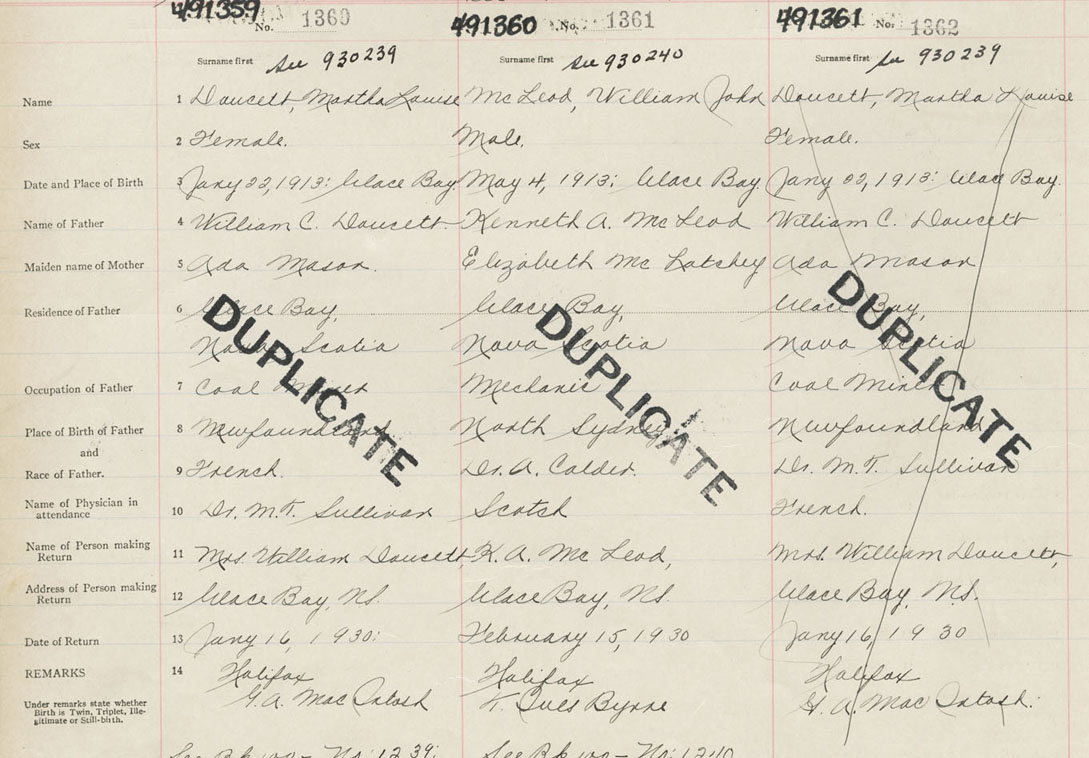 491359 No. 1360 491360 No. 1361 491361 No. 1362
Surname first See 930239 Surname first See 930240 Surname first See 930239
Name 1 Doucett, Martha Louise McLeod, William John Doucett, Martha Louise
Sex 2 Female. Male. Female.
Date and Place of Birth 3 Jany 22, 1913: Glace Bay May 4, 1913; Glace Bay. Jany 22, 1913: Glace Bay.
Name of Father 4 William C. Doucett. Kenneth A. McLeod William C. Doucett
Maiden name of Mother 5 Ada Mason. Elizabeth McLatchey Ada Mason
Residence of Father 6 Glace Bay, Glace Bay, Glace Bay,
Nova Scotia Nova Scotia Nova Scotia
Occupation of Father 7 Coal Miner Mechanic Coal Miner
Place of Birth of Father 8 Newfoundland North Sydney Newfoundland
and
Race of Father. 9 French. Dr. A. Calder. Dr. M.T. Sullivan
Name of Physician in attendance 10 Dr. M.T. Sullivan Scotch French.
Name of Person making Return 11 Mrs. William Doucett K. A. McLeod, Mrs. William Doucett,
Address of Person making Return 12 Glace Bay, N.S. Glace Bay, N.S. Glace Bay, N.S.
Date of Return 13 Jany 16, 1930: February 15, 1930 Jany 16, 1930
REMARKS 14 Halifax Halifax Halifax
Under remarks state whether Birth is Twin, Triplet, Illegitimate or Still-birth. G.A. MacIntosh T. Ives Byrne G.A. MacIntosh.
DUPLICATE DUPLICATE DUPLICATE
See Bk No: 1239: See Bk No: 1240